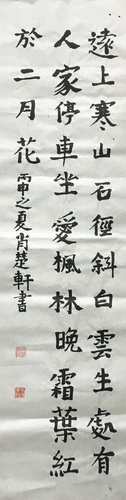 遠上寒山石徑斜白雲生處有
人家停車坐愛楓林晚霜葉紅
於二月花丙申之夏肖楚軒書